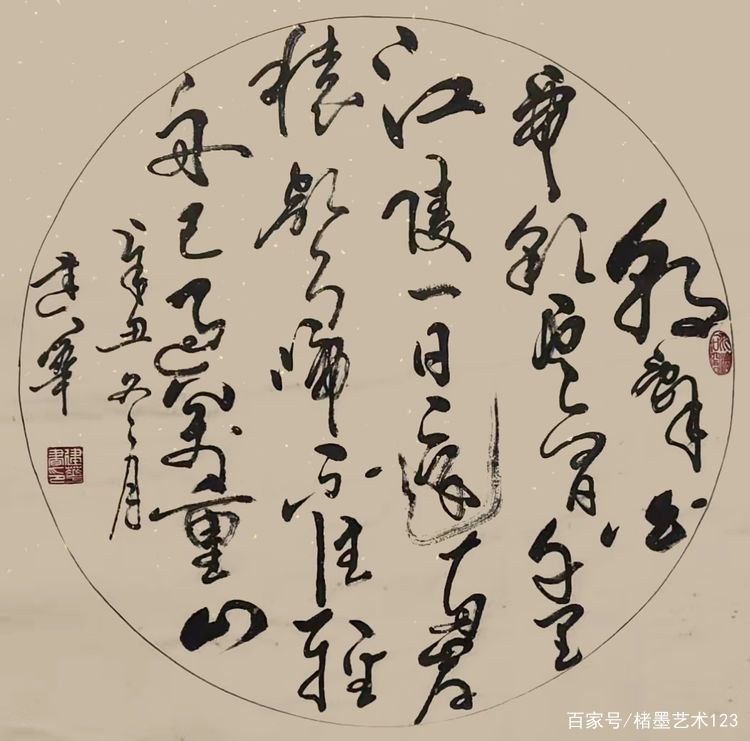 朝辞白
帝彩雲间千里
江陵一日還両岸
猿聲啼不住轻
舟已過萬重山
辛丑冬月
建華
百家号/楮墨艺术123